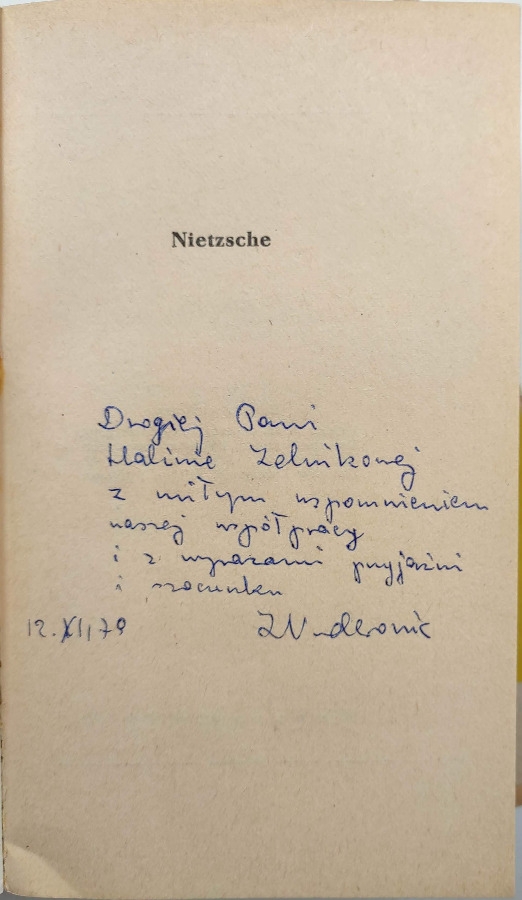 Nietzsche
Drogiej Pani
Halinie Zelnikowej
z miłym wspomnieniem
naszej współpracy
i z wyrazami przyjaźni
i szacunku
12.XI,79